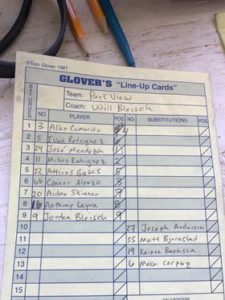 ©Tom Glover 1987
GLOVER'S "Line-Up Cards"
Team: Park View
Coach: Will Bleisch
NO. PLAYER POS. NO. SUBSTITUTIONS POS.
1 3 Allen Camarito
2 5 Ivan Rodriguez 6
3 24 José Mendoza
4 11 Mikey Rodriguez 2
5 22 Atticus Gates 5
6 Conner Alonzo 3
7 20 Aidan Skinner 7
8 16 Anthony Leyva 8
9 9 Jordan Bleisch 9
10 27 Joseph Anderson
11 55 Matt Bjornstad
12 19 Baptista
13 6 Makai
14
15